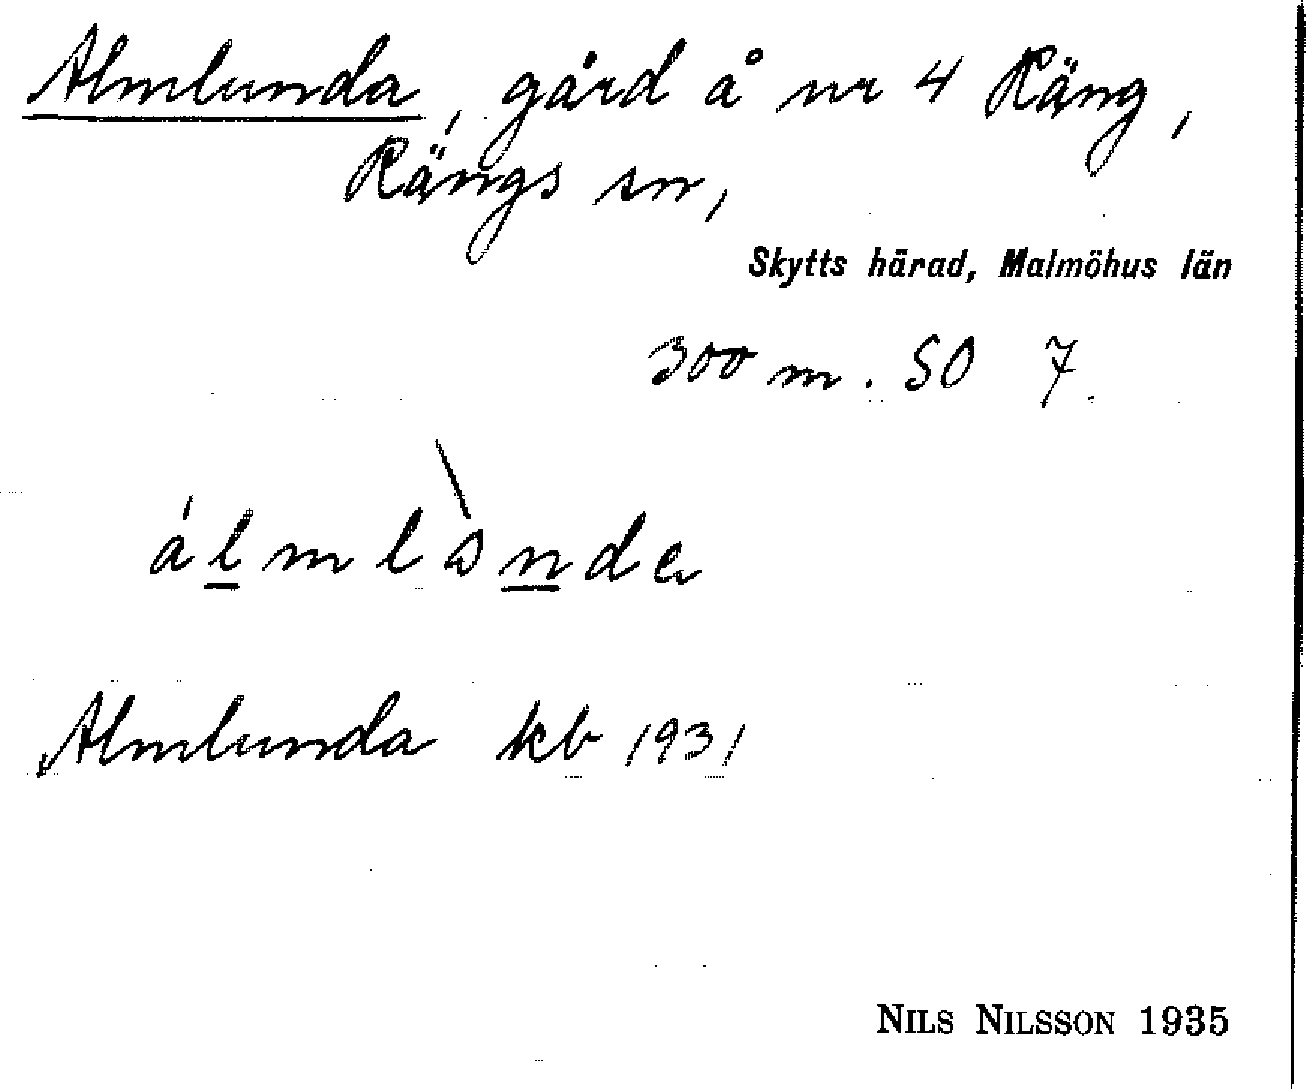 Almlunda, gård å nr 4 Räng,
Rängs sn,
Skytts härad, Malmöhus län
300 m. SO 7.
álmlònde
Almlunda kb 1931
NILS NILSSON 1935